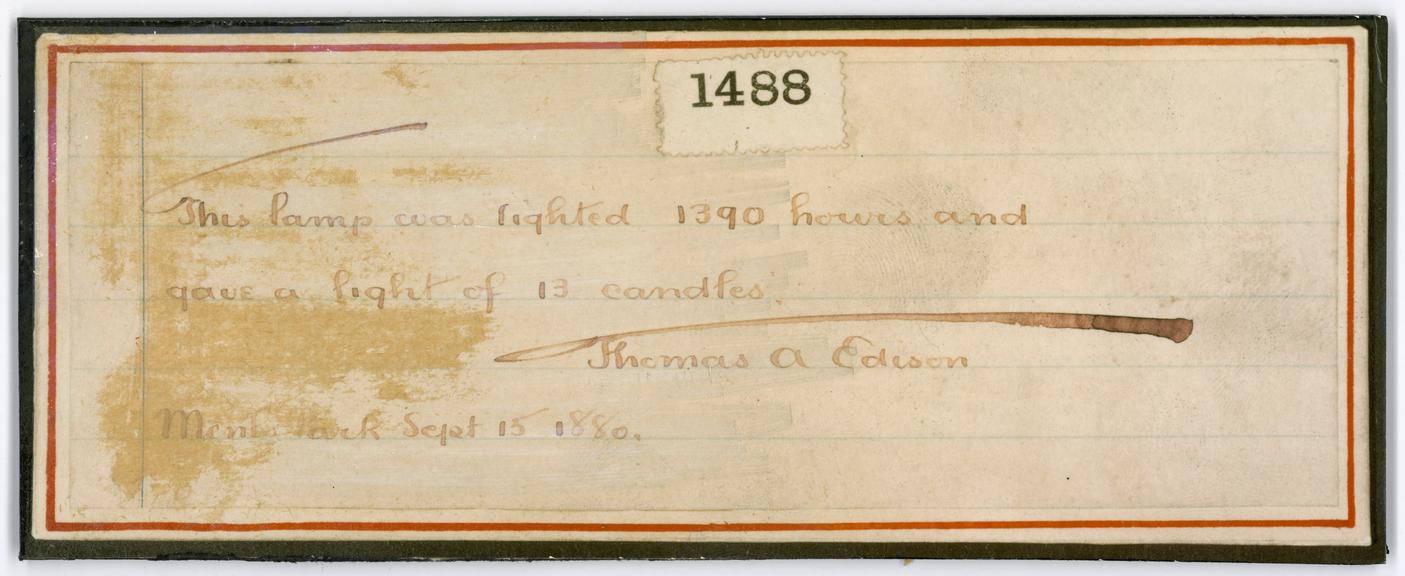 1488
This lamp was lighted 1390 hours and
gave a light of 13 candles.
Thomas A Edison
Sept 15 1880.